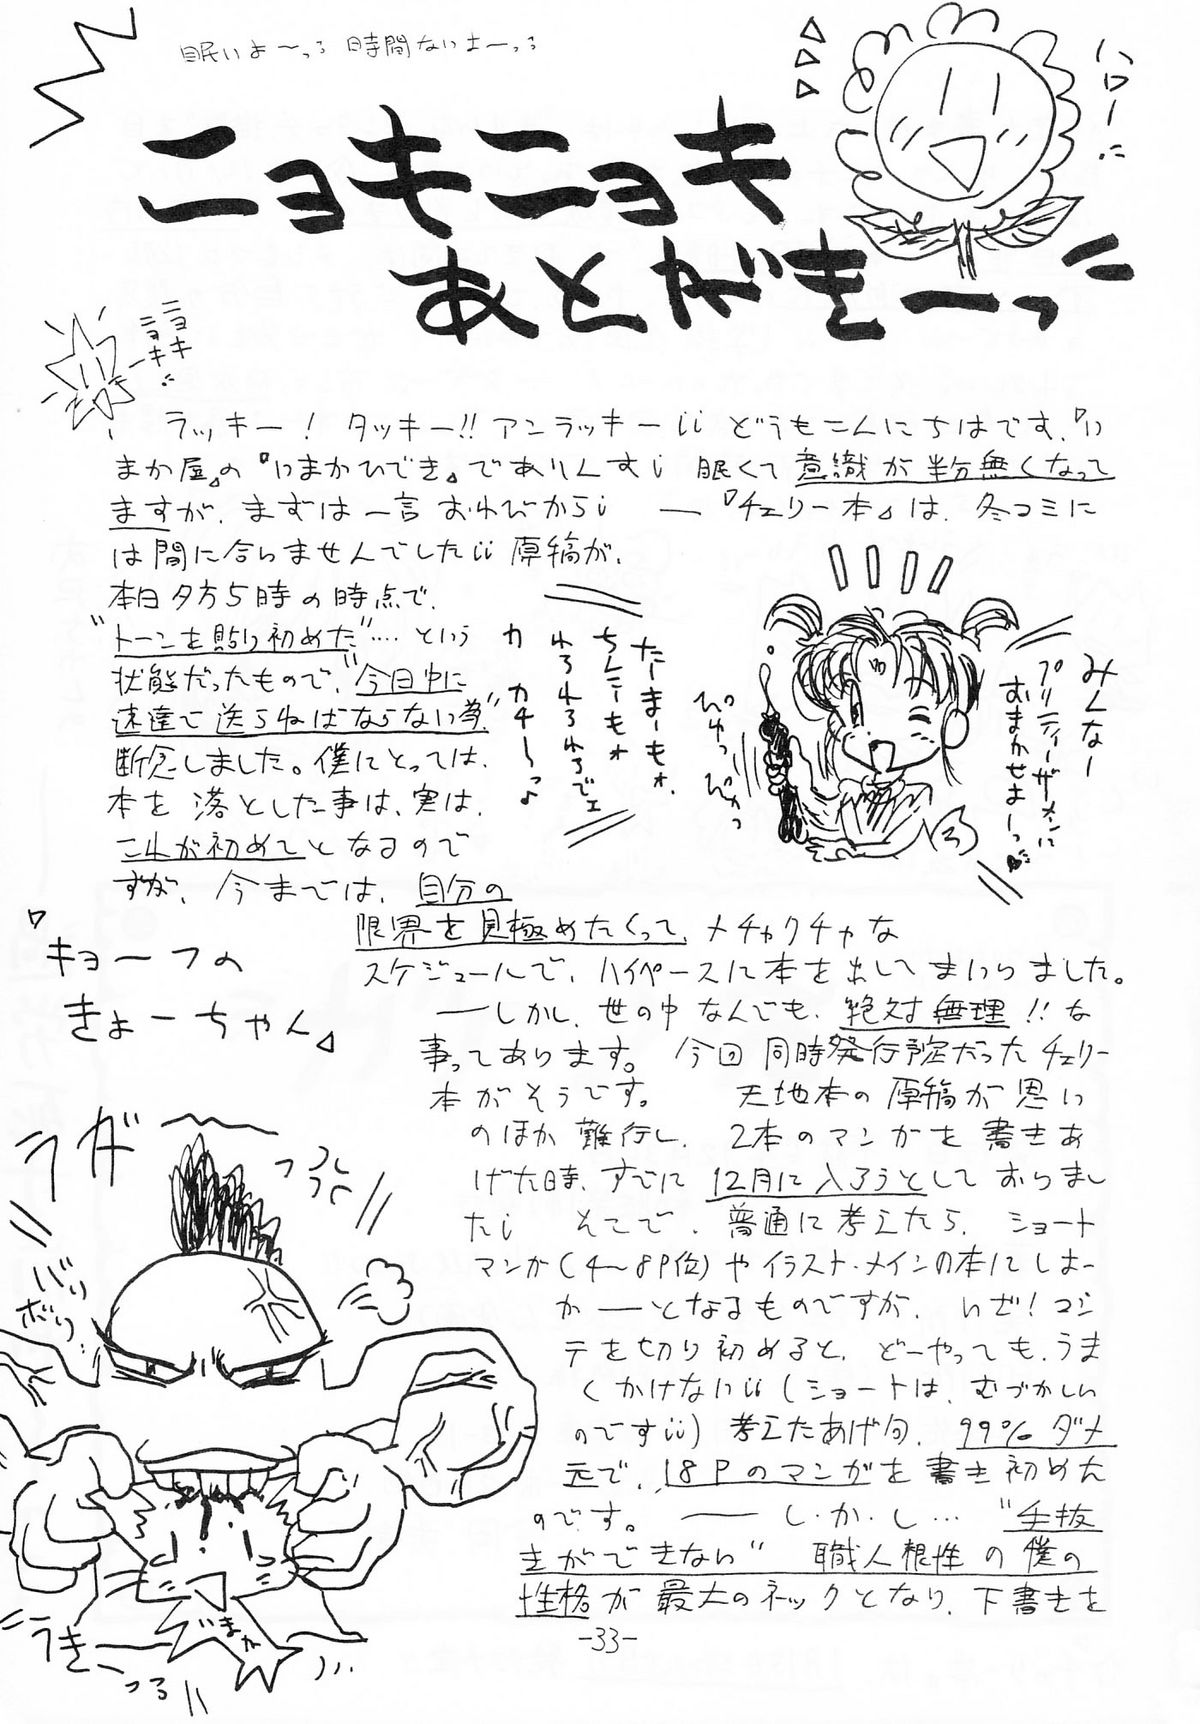 眠いよ〜っる 時間ないよーっる
ハロー
ニョキニョキ
あとがきーっ
ニョキ
ニョキ
ラッキー! タッキー!! アンラッキーii どうもこんにちはです。『い
まか屋』の『いまかひでき』でありんすi 眠くて意識が半分無くなって
ますが、まずは一言おわびからi ―『チェリー本』は、冬コミに
は間に合いませんでしたii 原稿が、
本日夕方5時の時点で、
"トーンを貼り初めた"…という
状態だったもので、"今日中に
速達で送らねばならない為"
断念しました。僕にとっては、
本を落とした事は、実は、
これが初めてとなるので
すが、今までは、自分の
限界を見極めたくって、メチャクチャな
スケジュールで、ハイペースに本を出してまいりました。
―しかし、世の中なんでも、絶対無理!!な
事ってあります。 今回同時発行予定だったチェリー
本がそうです。 天地本の原稿が思い
のほか難行し、2本のマンガを書きあ
げた時、すでに12月に入ろうとしておりまし
たi そこで、普通に考えたら、ショート
マンガ(4〜8P位)やイラスト・メインの本にしよー
か―となるものですが、いざ!コン
テを切り初めると、どーやっても、うま
くかけないii(ショートは、むづかしい
のですii)考えたあげ句、99%ダメ
元で、18Pのマンガを書き初めた
のです。 ― し・か・し… "手抜
きができない" 職人根性の僕の
性格が最大のネックとなり、下書きを
みんなー
プリティーザーメンに
おまかせよーっ♥
ぴゅっ
ぴゅっ
たーまーもォ、
ちんこーもォ
われろわれろでェ
カ カチ〜っ♪
『キョーフの
きょーちゃん』
うが〜っ
バリ
ボリ
いまか
うきーっ
-33-